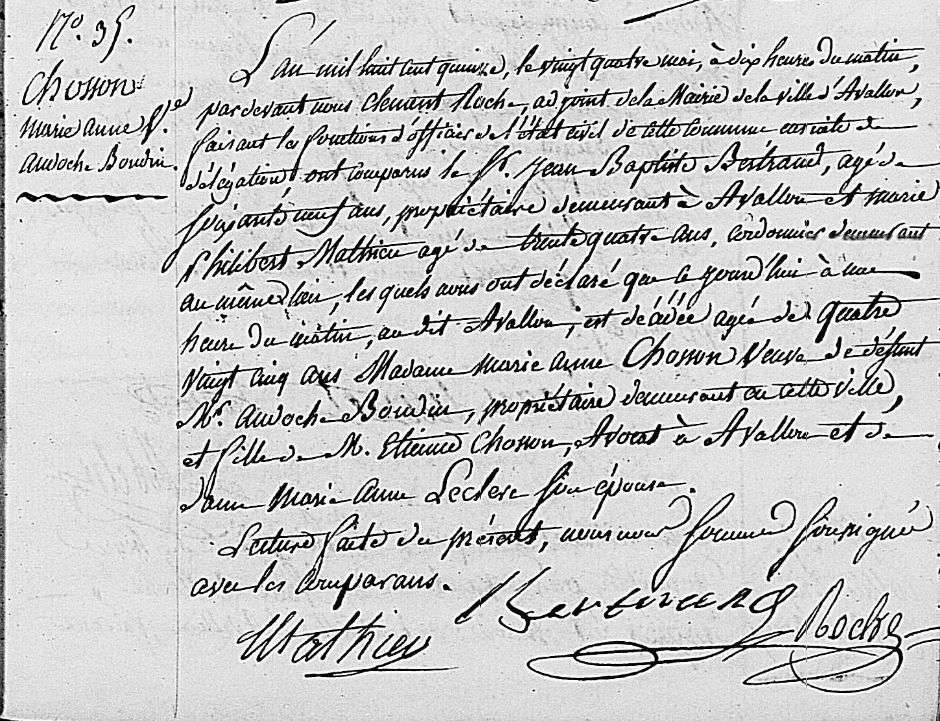 No. 35.
Chosson
marie anne Ve.
andoche Boudin.
L'an mil huit cent quinze, le vingt quatre mai, à dix heures du matin,
pardevant nous Clément Roche, adjoint de la Mairie de la ville d'Avallon,
faisant les fonctions d'officier de l'état civil de cette Commune ensuite de
délégation, ont comparus le Sr. Jean Baptiste Bertrand, agé de
soixante neuf ans, propriétaire demeurant à Avallon et marie
Philibert Mathieu agé de trente quatre ans, cordonnier demeurant
au même lieu, les quels nous ont déclaré que ce jourd'hui à une
heure du matin, au dit Avallon, est décédée agée de quatre
vingt cinq ans Madame marie anne Chosson Veuve de défunt
Mr. andoche Boudin, propriétaire demeurant en cette ville,
et fille de M. Etienne Chosson, Avocat à Avallon et de
dame Marie Anne Leclerc son épouse.
Lecture faite du présent, nous nous sommes soussigné
avec les comparans.
Mathieu Bertrand Roche